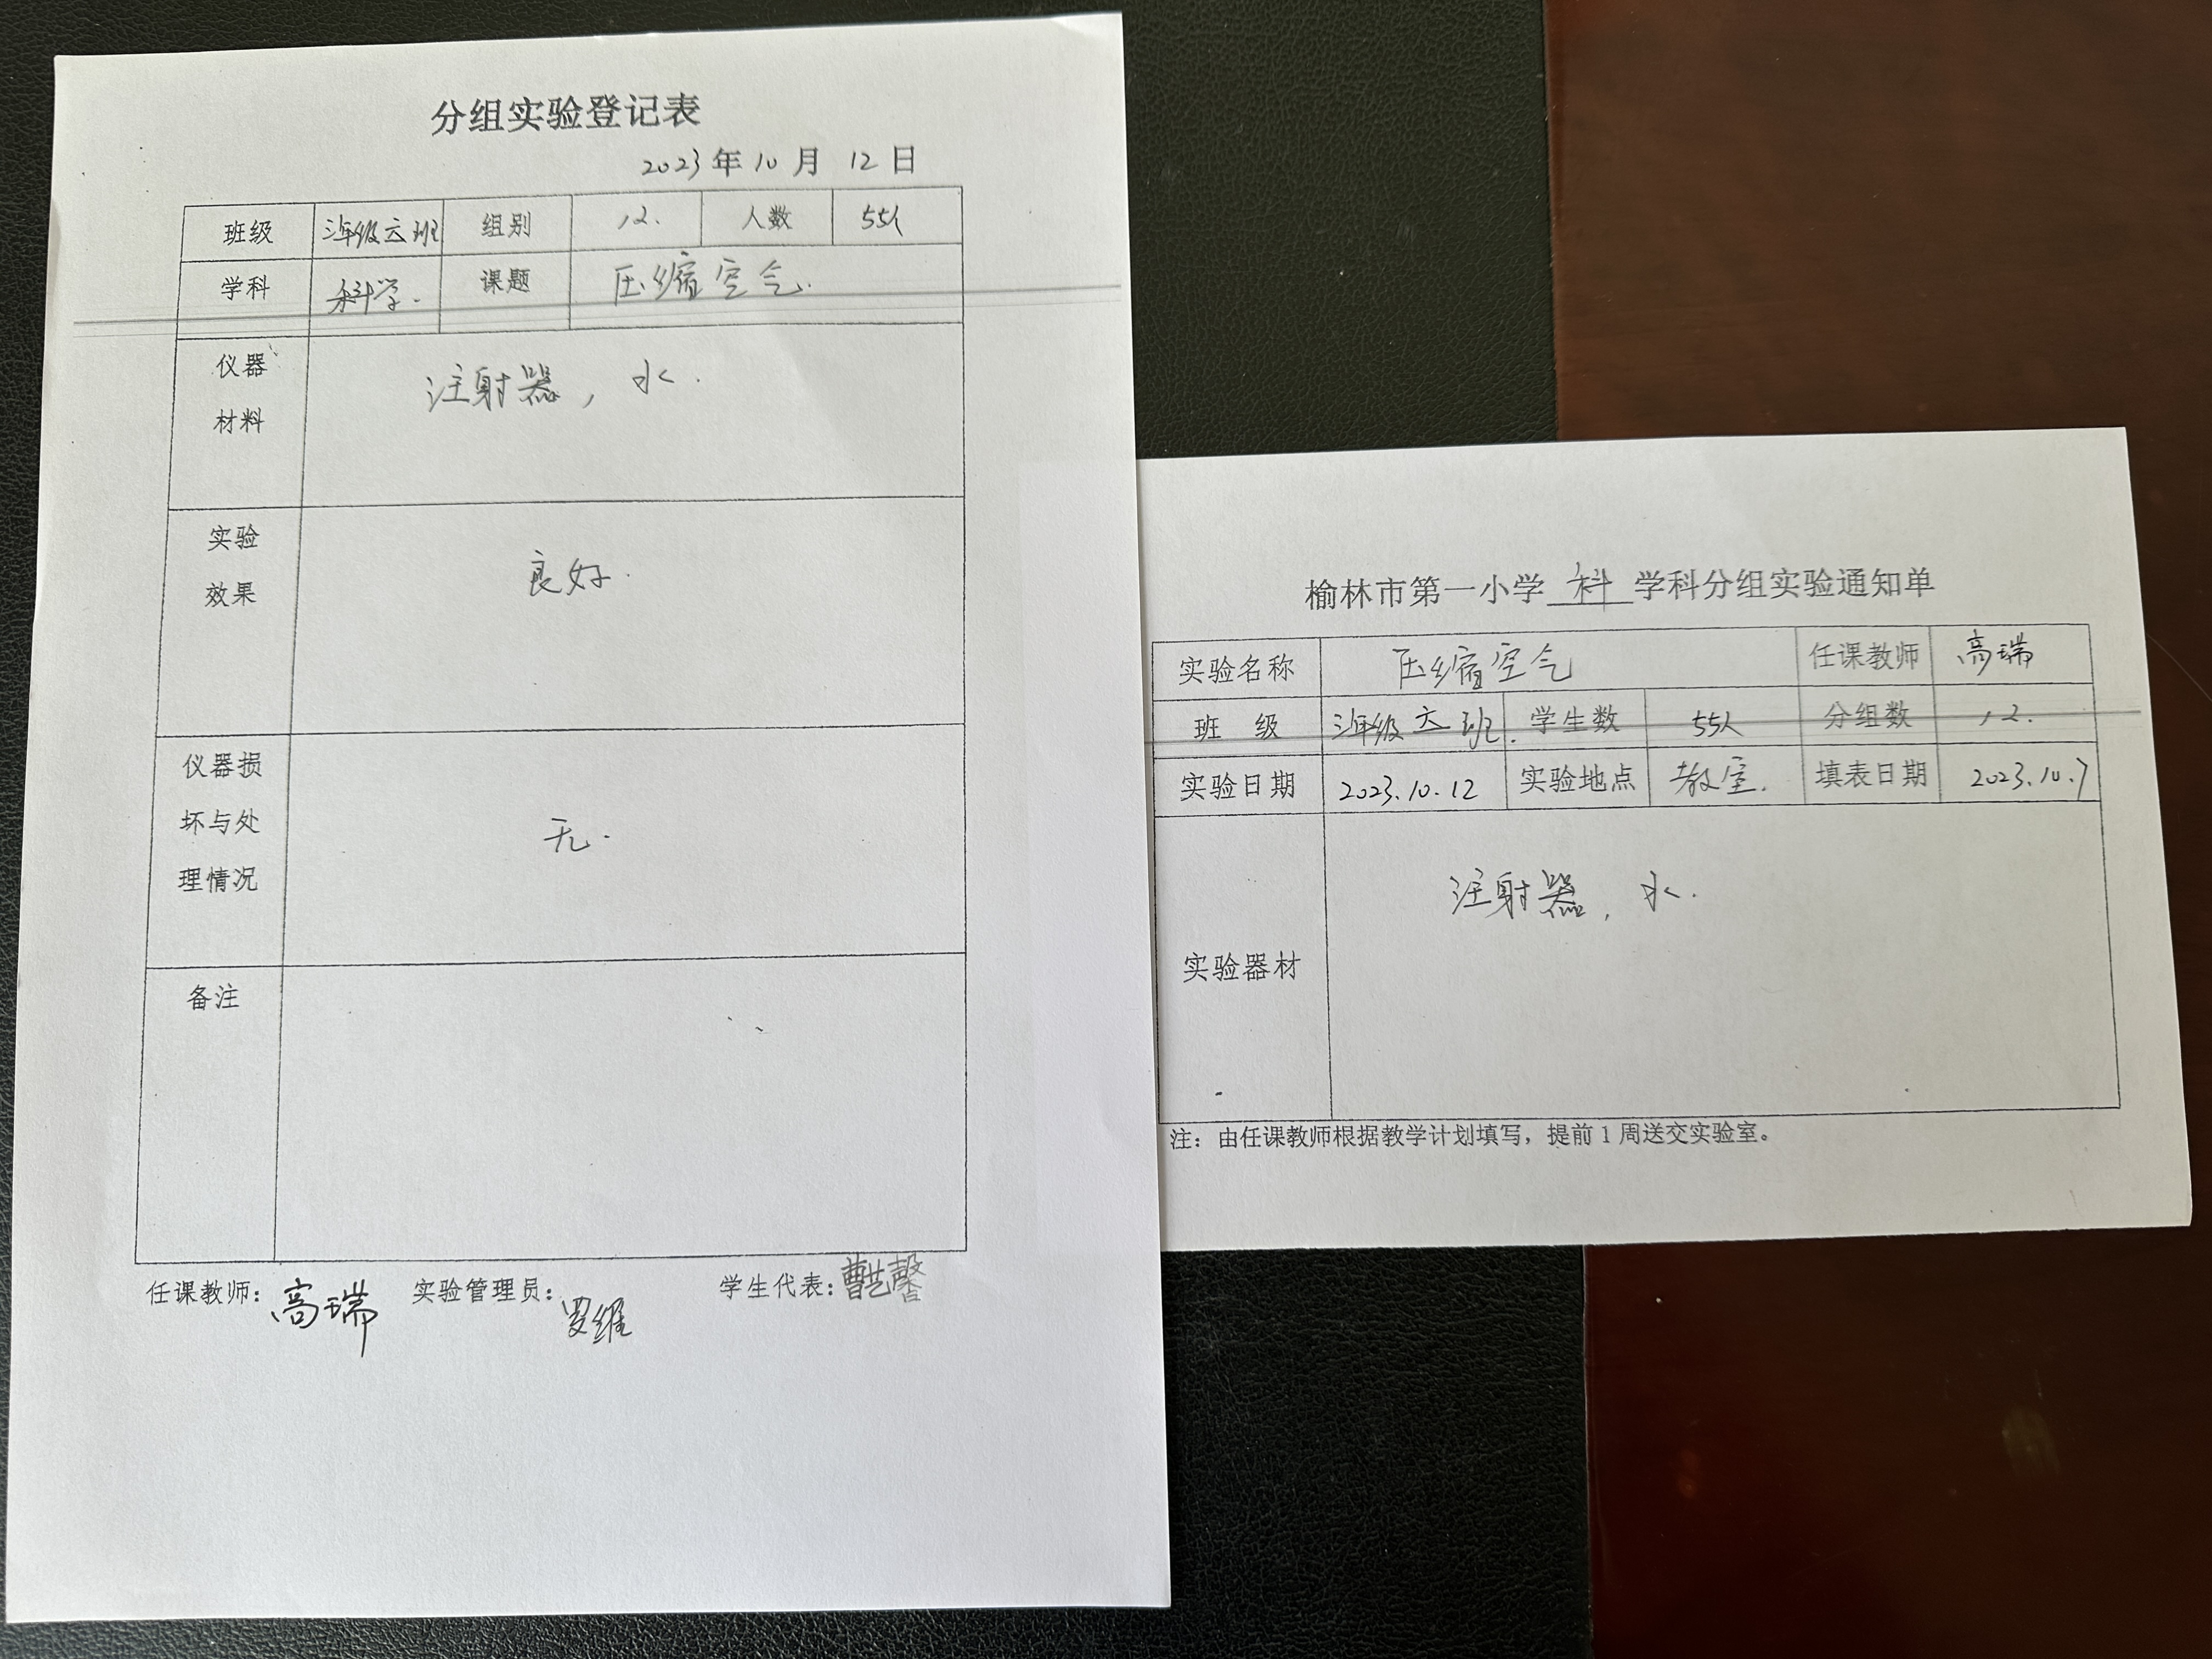 分组实验登记表
2023年10月12日
班级 三年级六班 组别 12. 人数 55人
学科 科学. 课题 压缩空气.
仪器
材料
注射器，水.
实验
效果
良好.
仪器损
坏与处
理情况
无.
备注
任课教师：高瑞 实验管理员：罗维 学生代表：曹艺馨
榆林市第一小学 科 学科分组实验通知单
实验名称 压缩空气 任课教师 高瑞
班 级 三年级六班. 学生数 55人 分组数 12.
实验日期 2023.10.12 实验地点 教室. 填表日期 2023.10.7
实验器材 注射器，水.
注：由任课教师根据教学计划填写，提前1周送交实验室。